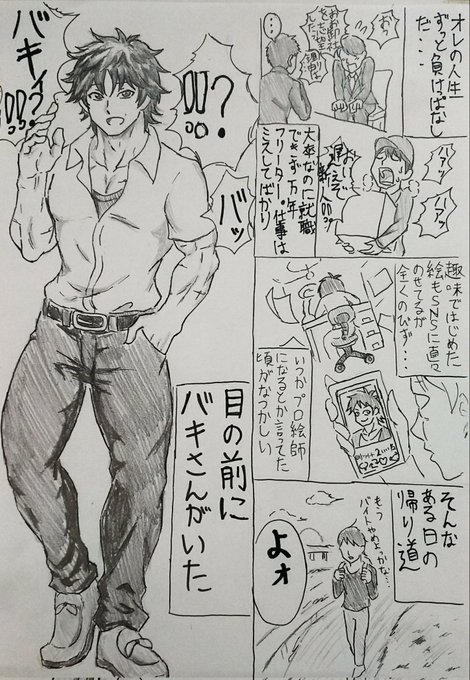 オレの人生
ずっと負けっぱなし
だ・・・
おお御社
を志望
ハアッ
ハアッ
おい
遅えぞ
新人!!
大卒なのに就職
できず万年
フリーター。仕事は
ミスしてばかり
趣味ではじめた
絵もSNSに直々
のせてるが
全くのびず・・・
いつかプロ絵師
になるとか言ってた
頃がなつかしい
そんな
ある日の
帰り道
もう
バイトやめよっかな…
よォ
!!?
バッ
バキィ?!!
目の前に
バキさんがいた